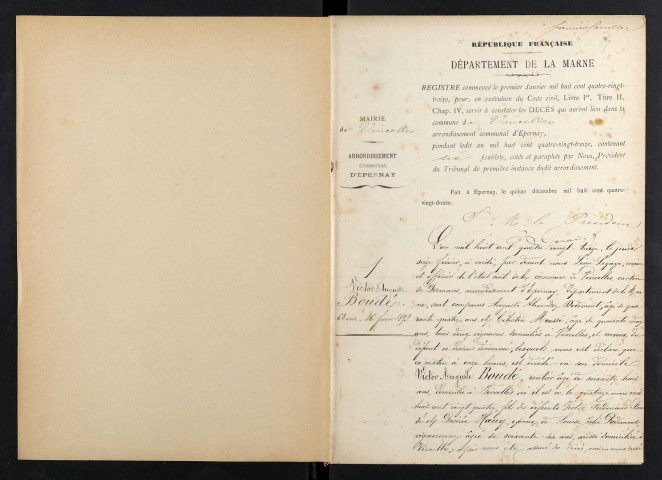 premier feuillet
RÉPUBLIQUE FRANÇAISE
DÉPARTEMENT DE LA MARNE
REGISTRE commencé le premier Janvier mil huit cent quatre-vingt-
treize, pour, en exécution du Code civil, Livre Ier, Titre II,
Chap. IV, servir à constater les DÉCÈS qui auront lieu dans la
commune de Vincelles
arrondissement communal d'Epernay,
pendant ledit an mil huit cent quatre-vingt-treize, contenant
feuillets, cotés et paraphés par Nous, Président
du Tribunal de première instance dudit arrondissement.
Fait à Epernay, le quinze décembre mil huit cent quatre-
vingt-douze.
MAIRIE
de Vincelles
ARRONDISSEMENT
COMMUNAL
D'EPERNAY
M. le Président
1
Victor Auguste
Boudé
16 février 1893
L'an mil huit cent quatre vingt treize, le jeudi
seize février, à midi, par devant nous Léon maire
et officier de l'état civil de la commune de Vincelles canton
de Dormans, arrondissement d'Epernay, département de la Mar
ne, sont comparus Auguste âgé de qua
rante quatre ans et Célestin âgé de quarante
ans, tous deux vignerons domiciliés à Vincelles, et
défunt ci dessous dénommé, lesquels nous ont déclaré que
ce matin à onze heures, est décédé en son domicile
Victor Auguste Boudé, rentier âgé de soixante huit
ans, domicilié à Vincelles où il est né le quatorze mars mil
huit cent vingt quatre, fils des défunts Victor Ferdinand Bou
dé et Désirée Hany, époux de Louise Julie
vigneronne âgée de soixante ans, aussi domiciliée à
Vincelles, après nous être assuré du décès, avons